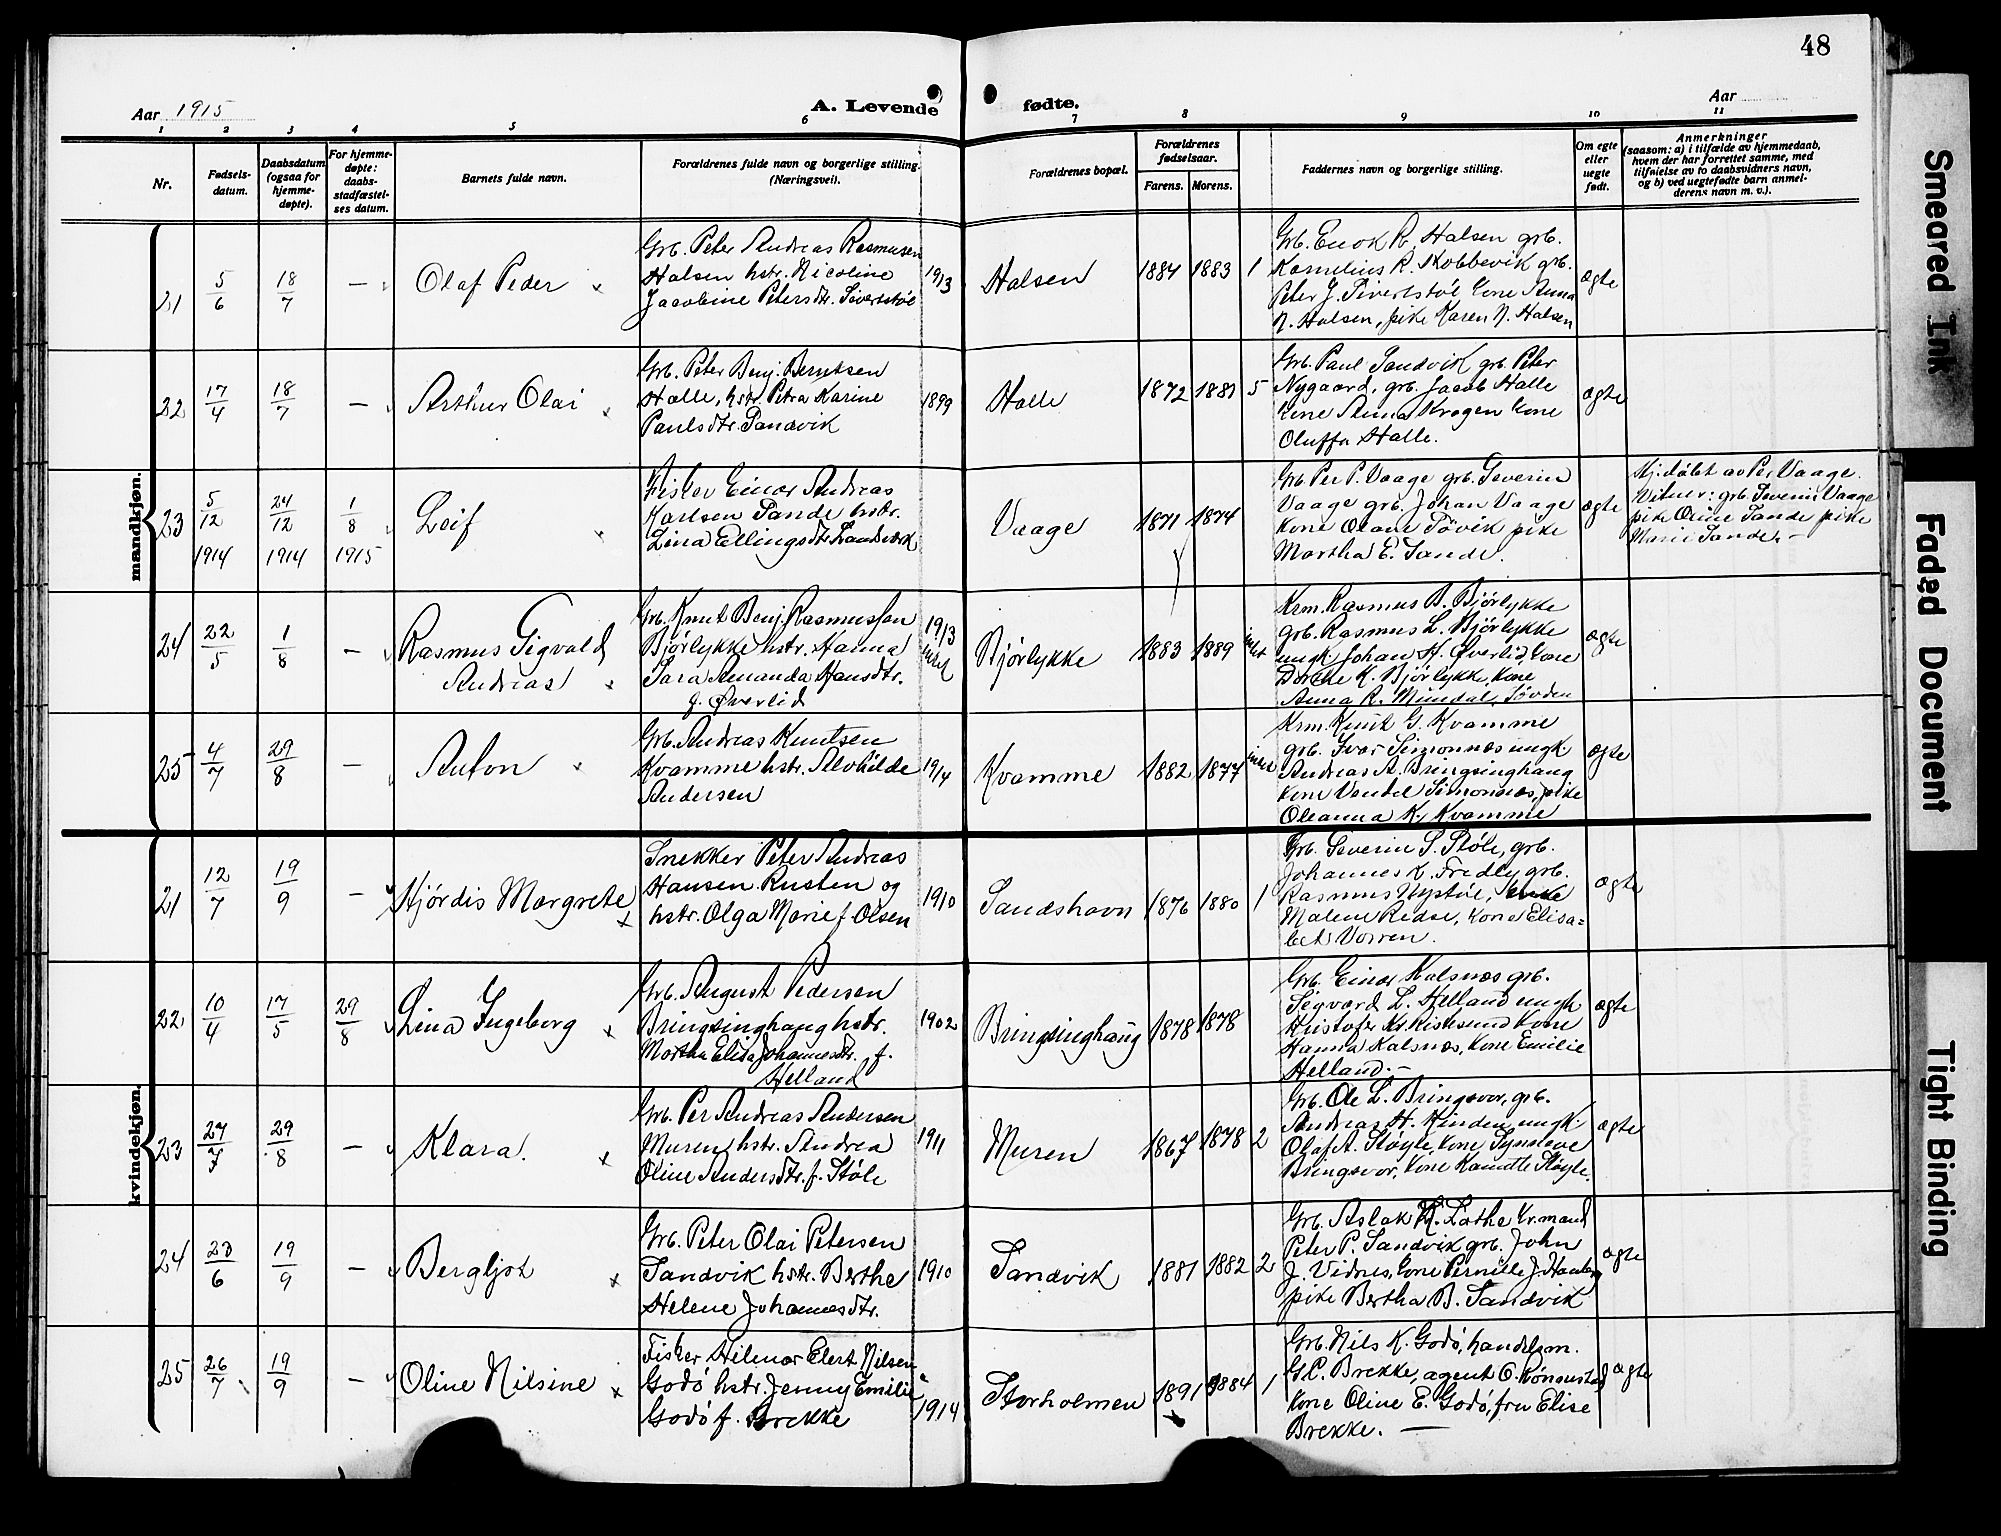 48
Aar 1915
A. Levende
fødte.
Aar
1 2 3 4 5 6 7 8 9 10 11
Nr.
Fødsels-
datum.
Daabsdatum
(ogsaa for
hjemme-
døpte).
For hjemme-
døpte:
daabs-
stadfæstel-
ses datum.
Barnets fulde navn.
Forældrenes fulde navn og borgerlige stilling.
(Næringsvei).
Forældrenes bopæl.
Forældrenes
fødselsaar.
Farens. Morens.
Faddernes navn og borgerlige stilling.
Om egte
eller
uegte
født.
Anmerkninger
(saasom: a) i tilfælde av hjemmedaab,
hvem der har forrettet samme, med
tilføielse av to daabsvidners navn,
og b) ved uegtefødte barn anmel-
derens navn m. v.).
mandkjøn.
21
5/6
18/7
—
Olaf Peder
Grb. Peter Andreas Rasmusen
Halsen hstr. Nicoline
Jacobine Petersdtr. Sivertstøl
1913
Halsen
1884 1883 1
Grb. Enok R. Halsen grb.
Kornelius R. Skobbevik grb.
Peter J. Sivertstøl kone Anna
N. Halsen, pike Karen N. Halsen
ægte
22
17/4
18/7
—
Arthur Olai
Grb. Peter Benj. Berntsen
Halle, hstr. Petra Karine
Paulsdtr. Sandvik
1899
Halle
1872 1881 5
Grb. Paul Sandvik grb. Peter
Nygaard, grb. Jacob Halle
kone Anna Krogen kone
Oluffa Halle.
ægte
23
5/12
1914
24/12
1914
1/8
1915
Leif
Fisker Einar Andreas
Karlsen Sande hstr.
Lina Ellingsdtr. Landsværk
Vaage
1871 1874
Grb. Per P. Vaage grb. Severin
Vaage grb. Johan Vaage
kone Olane Søvik pike
Martha E. Sande.
ægte
Hj.døbt av Per Vaage.
Vitner: grb. Severin Vaage
pike Oline Sande pike
Marie Sande. —
24
22/5
1/8
—
Rasmus Sigvald
Andreas
Grb. Knut Benj. Rasmussen
Bjørlykke hstr. Hanna
Sara Amanda Hansdtr.
f. Øverlid
1913
Bjørlykke
1883 1889
Krm. Rasmus B. Bjørlykke
grb. Rasmus L. Bjørlykke
ungk. Johan H. Øverlid, kone
Dorthe K. Bjørlykke, kone
Anna R. Mundal, Søvden
ægte
25
4/7
29/8
—
Anton
Grb. Andreas Knutsen
Kvamme hstr. Alvhilde
Andersen
1914
Kvamme
1882 1877
Krm. Knut G. Kvamme
grb. Ivar Simonnæs ungk.
Andreas A. Bringsinghaug
kone Vendel Simonnæs, pike
Oleanna K. Kvamme
ægte
kvindekjøn.
21
12/7
19/9
—
Hjørdis Margrete
Snekker Peter Andreas
Hansen Rusten og
hstr. Olga Marie f. Olsen
1910
Sandshavn
1876 1880 1
Grb. Severin S. Støle, grb.
Johannes K. Fredly grb.
Rasmus Nystøl, enke
Malene Redse, kone Elisa=
bet Vorren.
ægte
22
10/4
17/5
29/8
Lina Ingeborg
Grb. August Pedersen
Bringsinghaug hstr.
Martha Elisa Johannesdtr. f.
Helland
1902
Bringsinghaug
1878 1878
Grb. Einar Kalsnæs grb.
Sigvard L. Helland ungk.
Kristofer Kr. Riskesund kone
Hanna Kalsnæs, kone Emilie
Helland. —
ægte
23
27/7
29/8
—
Klara.
Grb. Per Andreas Andersen
Muren hstr. Andrea
Oline Andersdtr. f. Støle
1911
Muren
1867 1878 2
Grb. Ole L. Bringsvor, grb.
Andreas H. Kinden, ungk.
Olaf A. Støyle, kone Synsleve
Bringsvor, kone Kamilla Støyle.
ægte
24
23/6
19/9
—
Bergljot
Grb. Peter Olai Petersen
Sandvik hstr. Berthe
Helene Johannesdtr.
1910
Sandvik
1881 1882 2
Grb. Aslak K. Løthe kr.mand
Peter P. Sandvik grb. John
J. Vidnes, kone Pernille J. Hauberg
pike Bertha B. Sandvik
ægte
25
26/7
19/9
—
Oline Nilsine
Fisker Hilmar Elert Nilsen
Godø hstr. Jenny Emilie
Godø f. Brekke
1914
Storholmen
1891 1884 1
Grb. Nils K. Godø, handelsm.
G.P. Brekke, agent O. Rønnestad
kone Oline E. Godø, fru Elise
Brekke. —
ægte
Smeared Ink
Faded Document
Tight Binding